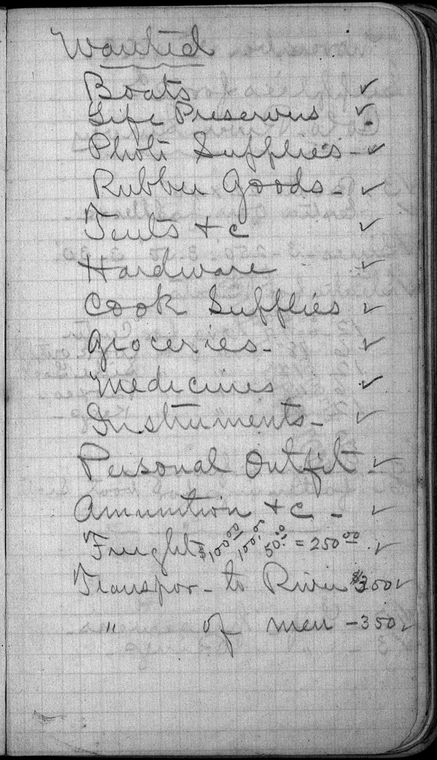 Wanted
Boats ✓
Life Preservers ✓
Photo Supplies - ✓
Rubber Goods - ✓
Tents + c ✓
Hardware ✓
Cook Supplies ✓
Groceries - ✓
Medicines ✓
Instruments - ✓
Personal Outfit - ✓
Amunition + c - ✓
Freight $100.00 100.00 50.00 = 250.00 ✓
Transpor - to River $350 ✓
" of men - 350 ✓